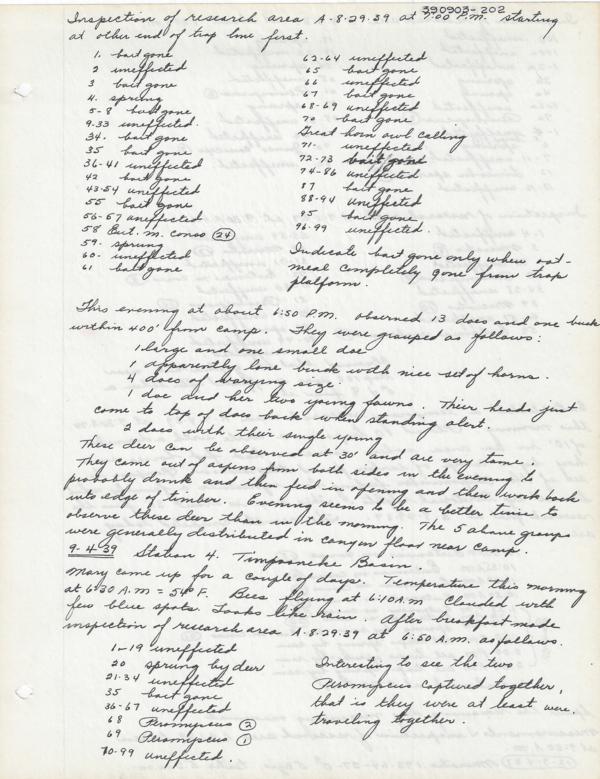 390903-202
Inspection of research area A-8-29-39 at 7:00 P.M. starting
at other end of trap line first.
1. bait gone
2 uneffected
3 bait gone
4. sprung
5-8 bait gone
9-33 uneffected.
34. bait gone
35 bait gone
36-41 uneffected
42 bait gone
43-54 uneffected
55 bait gone
56-57 uneffected
58 Eut. m. conso (24)
59. sprung
60- uneffected
61 bait gone
62-64 uneffected
65 bait gone
66 uneffected
67 bait gone
68-69 uneffected
70 bait gone
Great horn owl calling
71- uneffected
72-73 bait gone
74-86 uneffected
87 bait gone
88-94 uneffected
95 bait gone
96-99 uneffected.
Indicate bait gone only when oat-
meal completely gone from trap
platform.
This evening at about 6:50 P.M. observed 13 does and one buck
within 400' from camp. They were grouped as follows:
1 large and one small doe
1 apparently lone buck with nice set of horns.
4 does of varying size.
1 doe and her two young fawns. Thier heads just
come to top of does back when standing alert.
2 does with their single young
These deer can be observed at 30' and are very tame.
They came out of aspens from both sides in the evening to
probably drink and then feed in opening and then work back
into edge of timber. Evening seems to be a better time to
observe these deer than in the morning. The 5 above groups
were generally distributed in canyon floor near camp.
9-4-39 Station 4. Timpooneke Basin.
Mary came up for a couple of days. Temperature this morning
at 6:30 A.M = 54° F. Bees flying at 6:10 A.M Clouded with
few blue spots. Looks like rain. After breakfast made
inspection of research area A-8-29-39 at 6:50 A.M. as follows.
1-19 uneffected
20 sprung by deer
21-34 uneffected
35 bait gone
36-67 uneffected
68 Peromyscus (2)
69 Peromyscus (1)
70-99 uneffected.
Interesting to see the two
Peromyscus captured together,
that is they were at least were
traveling together.